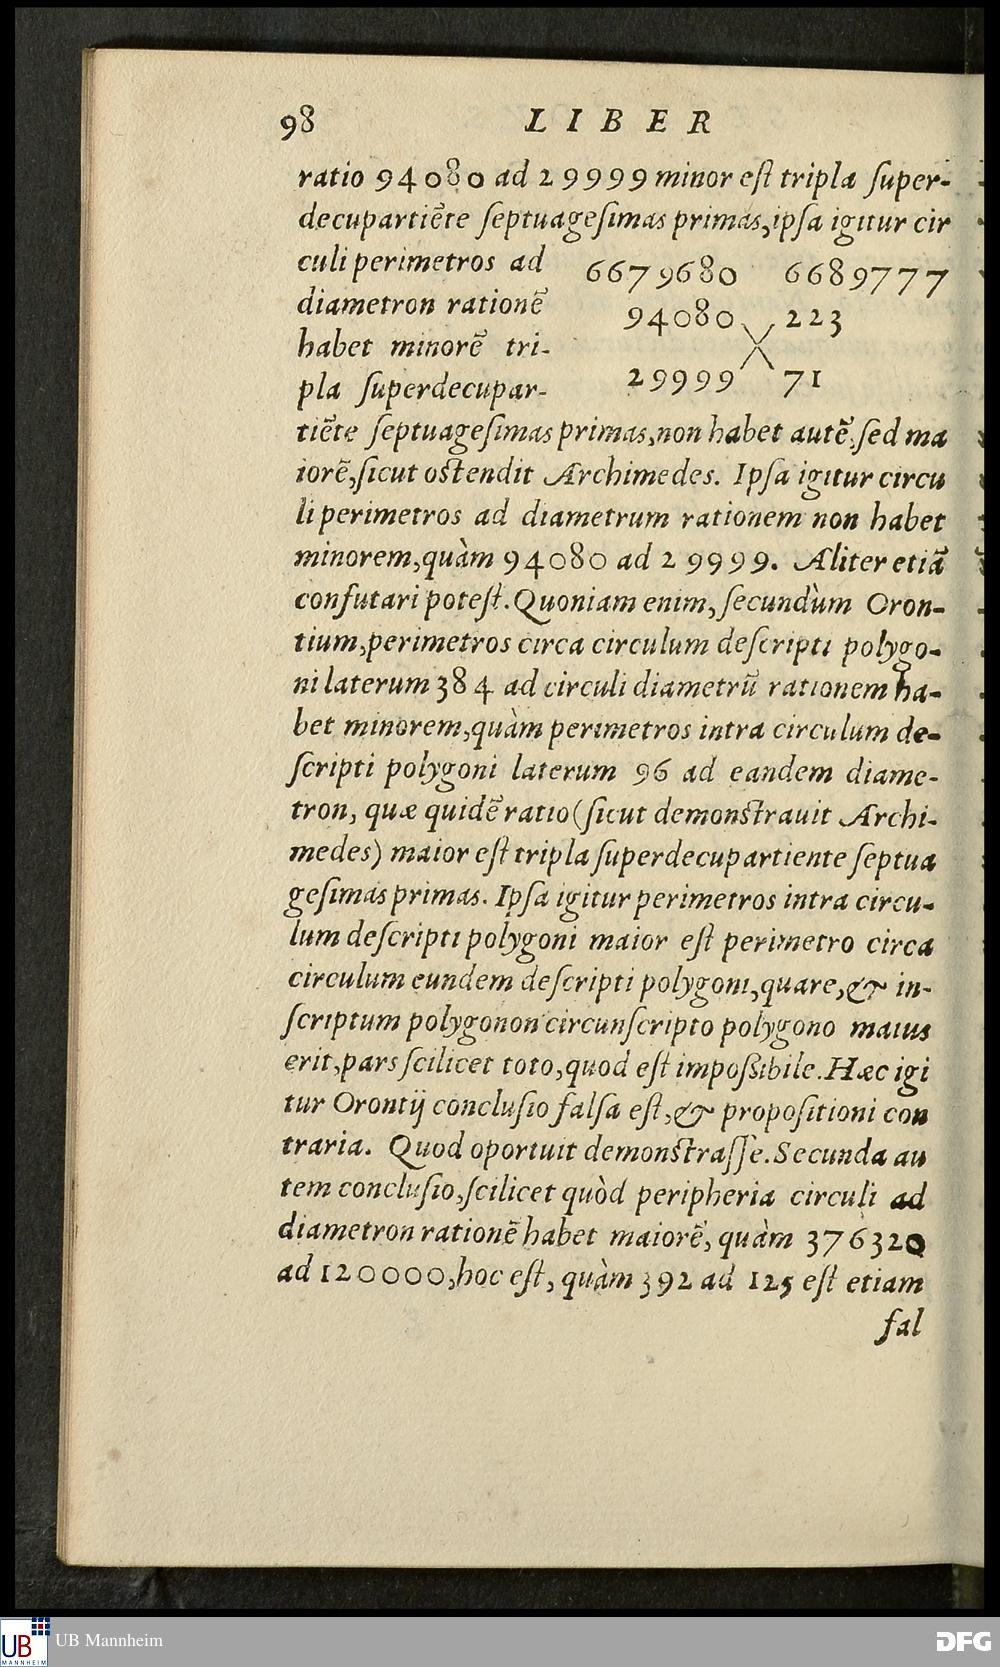 98 LIBER
ratio 94080 ad 29999 minor eſt tripla ſuper-
decupartiẽte ſeptuageſimas primas, ipſa igitur cir
culi perimetros ad 6679680 6689777
diametron rationẽ 94080 223
habet minorẽ tri-
pla ſuperdecupar- 29999 71
tiẽte ſeptuageſimas primas, non habet autẽ, ſed ma
iorẽ, ſicut oſtendit Archimedes. Ipſa igitur circu
li perimetros ad diametrum rationem non habet
minorem, quàm 94080 ad 29999. Aliter etiã
confutari poteſt. Quoniam enim, ſecundùm Oron-
tium, perimetros circa circulum deſcripti polygo-
ni laterum 384 ad circuli diametrũ rationem ha-
bet minorem, quàm perimetros intra circulum de-
ſcripti polygoni laterum 96 ad eandem diame-
tron, quæ quidẽ ratio (ſicut demonſtrauit Archi-
medes) maior eſt tripla ſuperdecupartiente ſeptua
geſimas primas. Ipſa igitur perimetros intra circu-
lum deſcripti polygoni maior eſt perimetro circa
circulum eundem deſcripti polygoni, quare, & in-
ſcriptum polygonon circunſcripto polygono maius
erit, pars ſcilicet toto, quod eſt impoſsibile. Hæc igi
tur Orontij concluſio falſa eſt, & propoſitioni con
traria. Quod oportuit demonſtraſſe. Secunda au
tem concluſio, ſcilicet quòd peripheria circuli ad
diametron rationẽ habet maiorẽ, quàm 376320
ad 120000, hoc eſt, quàm 392 ad 125 eſt etiam
fal
UB MANNHEIM
UB Mannheim
DFG